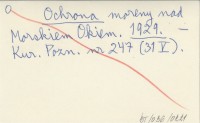 Ochrona moreny nad
Morskiem Okiem. 1929. –
Kur. Pozn. nr 247 (31 V).